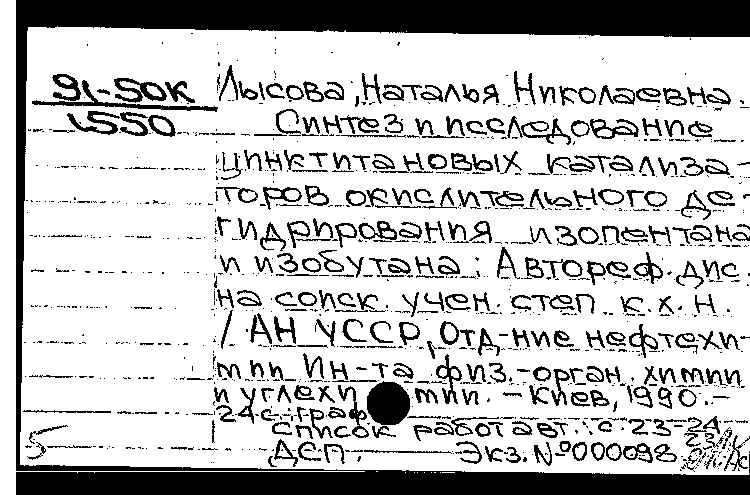 91-50К Лысова, Наталья Николаевна.
1550 Синтез и исследование
цинктитановых катализа-
торов окислительного де-
гидрирования изопентана
и изобутана: Автореф. дис.
на соиск. учен. степ. к.х.н.
/ АН УССР, Отд-ние нефтехи-
мии Ин-та физ.-орган. химии
и углехимии. - Киев, 1990. -
24 с.: граф
Список работ авт.: с. 23-24
5 ДСП. Экз. №000098